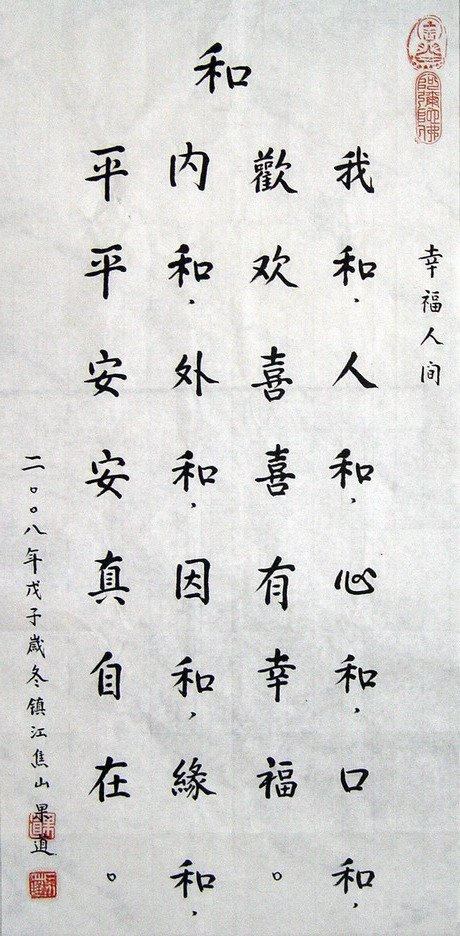 阿彌陀佛
幸福人间
和
我和，人和，心和，口和，
歡欢喜喜有幸福。
内和，外和，因和，緣和，
平平安安真自在。
二〇〇八年戊子歲冬镇江焦山果道